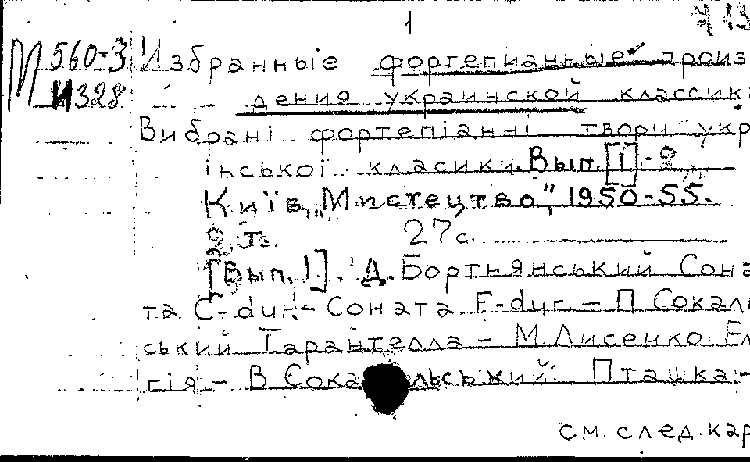 1
М 560-3 Избранные фортепианные произ
И 328 дения украинской классик
Вибрані фортепіанні твори укр
їнської класики. Вып. [1]-2
Київ, „Мистецтво", 1950-55.
2 т. 27 с.
[Вып. 1]. Д. Бортнянський Сона
та C-dur - Соната F-dur - П Сокаль
ський Тарантелла - М. Лисенко Ел
гія - В Сокальський Пташка -
см. след. кар